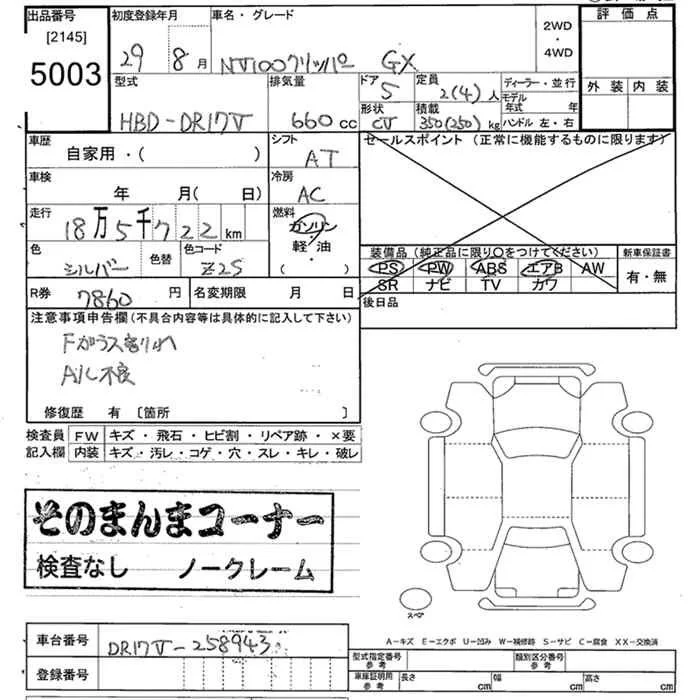 出品番号 初度登録年月 車名・グレード 評価点
[2145]
5003
29 8月 NV100クリッパー GX 2WD・4WD
型式 排気量 ドア 定員 ディーラー・並行 外装 内装
HBD-DR17V 660cc 5 2(4)人 モデル年式 年
形状 積載 ハンドル 左・右
CV 350(250)kg
車歴 シフト セールスポイント(正常に機能するものに限ります)
自家用・( ) AT
車検 冷房
年 月( 日) AC
走行 燃料
18万5千722km ガソリン
色 色替 色コード 軽・油
シルバー Z2S ( )
装備品(純正品に限り○をつけてください) 新車保証書
PS PW ABS エアB AW 有・無
SR ナビ TV カワ
R券 7860円 名変期限 月 日 後日品
注意事項申告欄(不具合内容等は具体的に記入して下さい)
Fガラス割れ
A/C不良
修復歴 有 [箇所 ]
検査員 FW キズ・飛石・ヒビ割・リペア跡・×要
記入欄 内装 キズ・汚レ・コゲ・穴・スレ・キレ・破レ
そのまんまコーナー
検査なし ノークレーム
スペア
A-キズ E-エクボ U-凹み W-補修跡 S-サビ C-腐食 XX-交換済
車台番号 DR17V-258943
型式指定番号 参考 類別区分番号 参考
登録番号
車庫証明用 参考 長さ cm 幅 cm 高さ cm